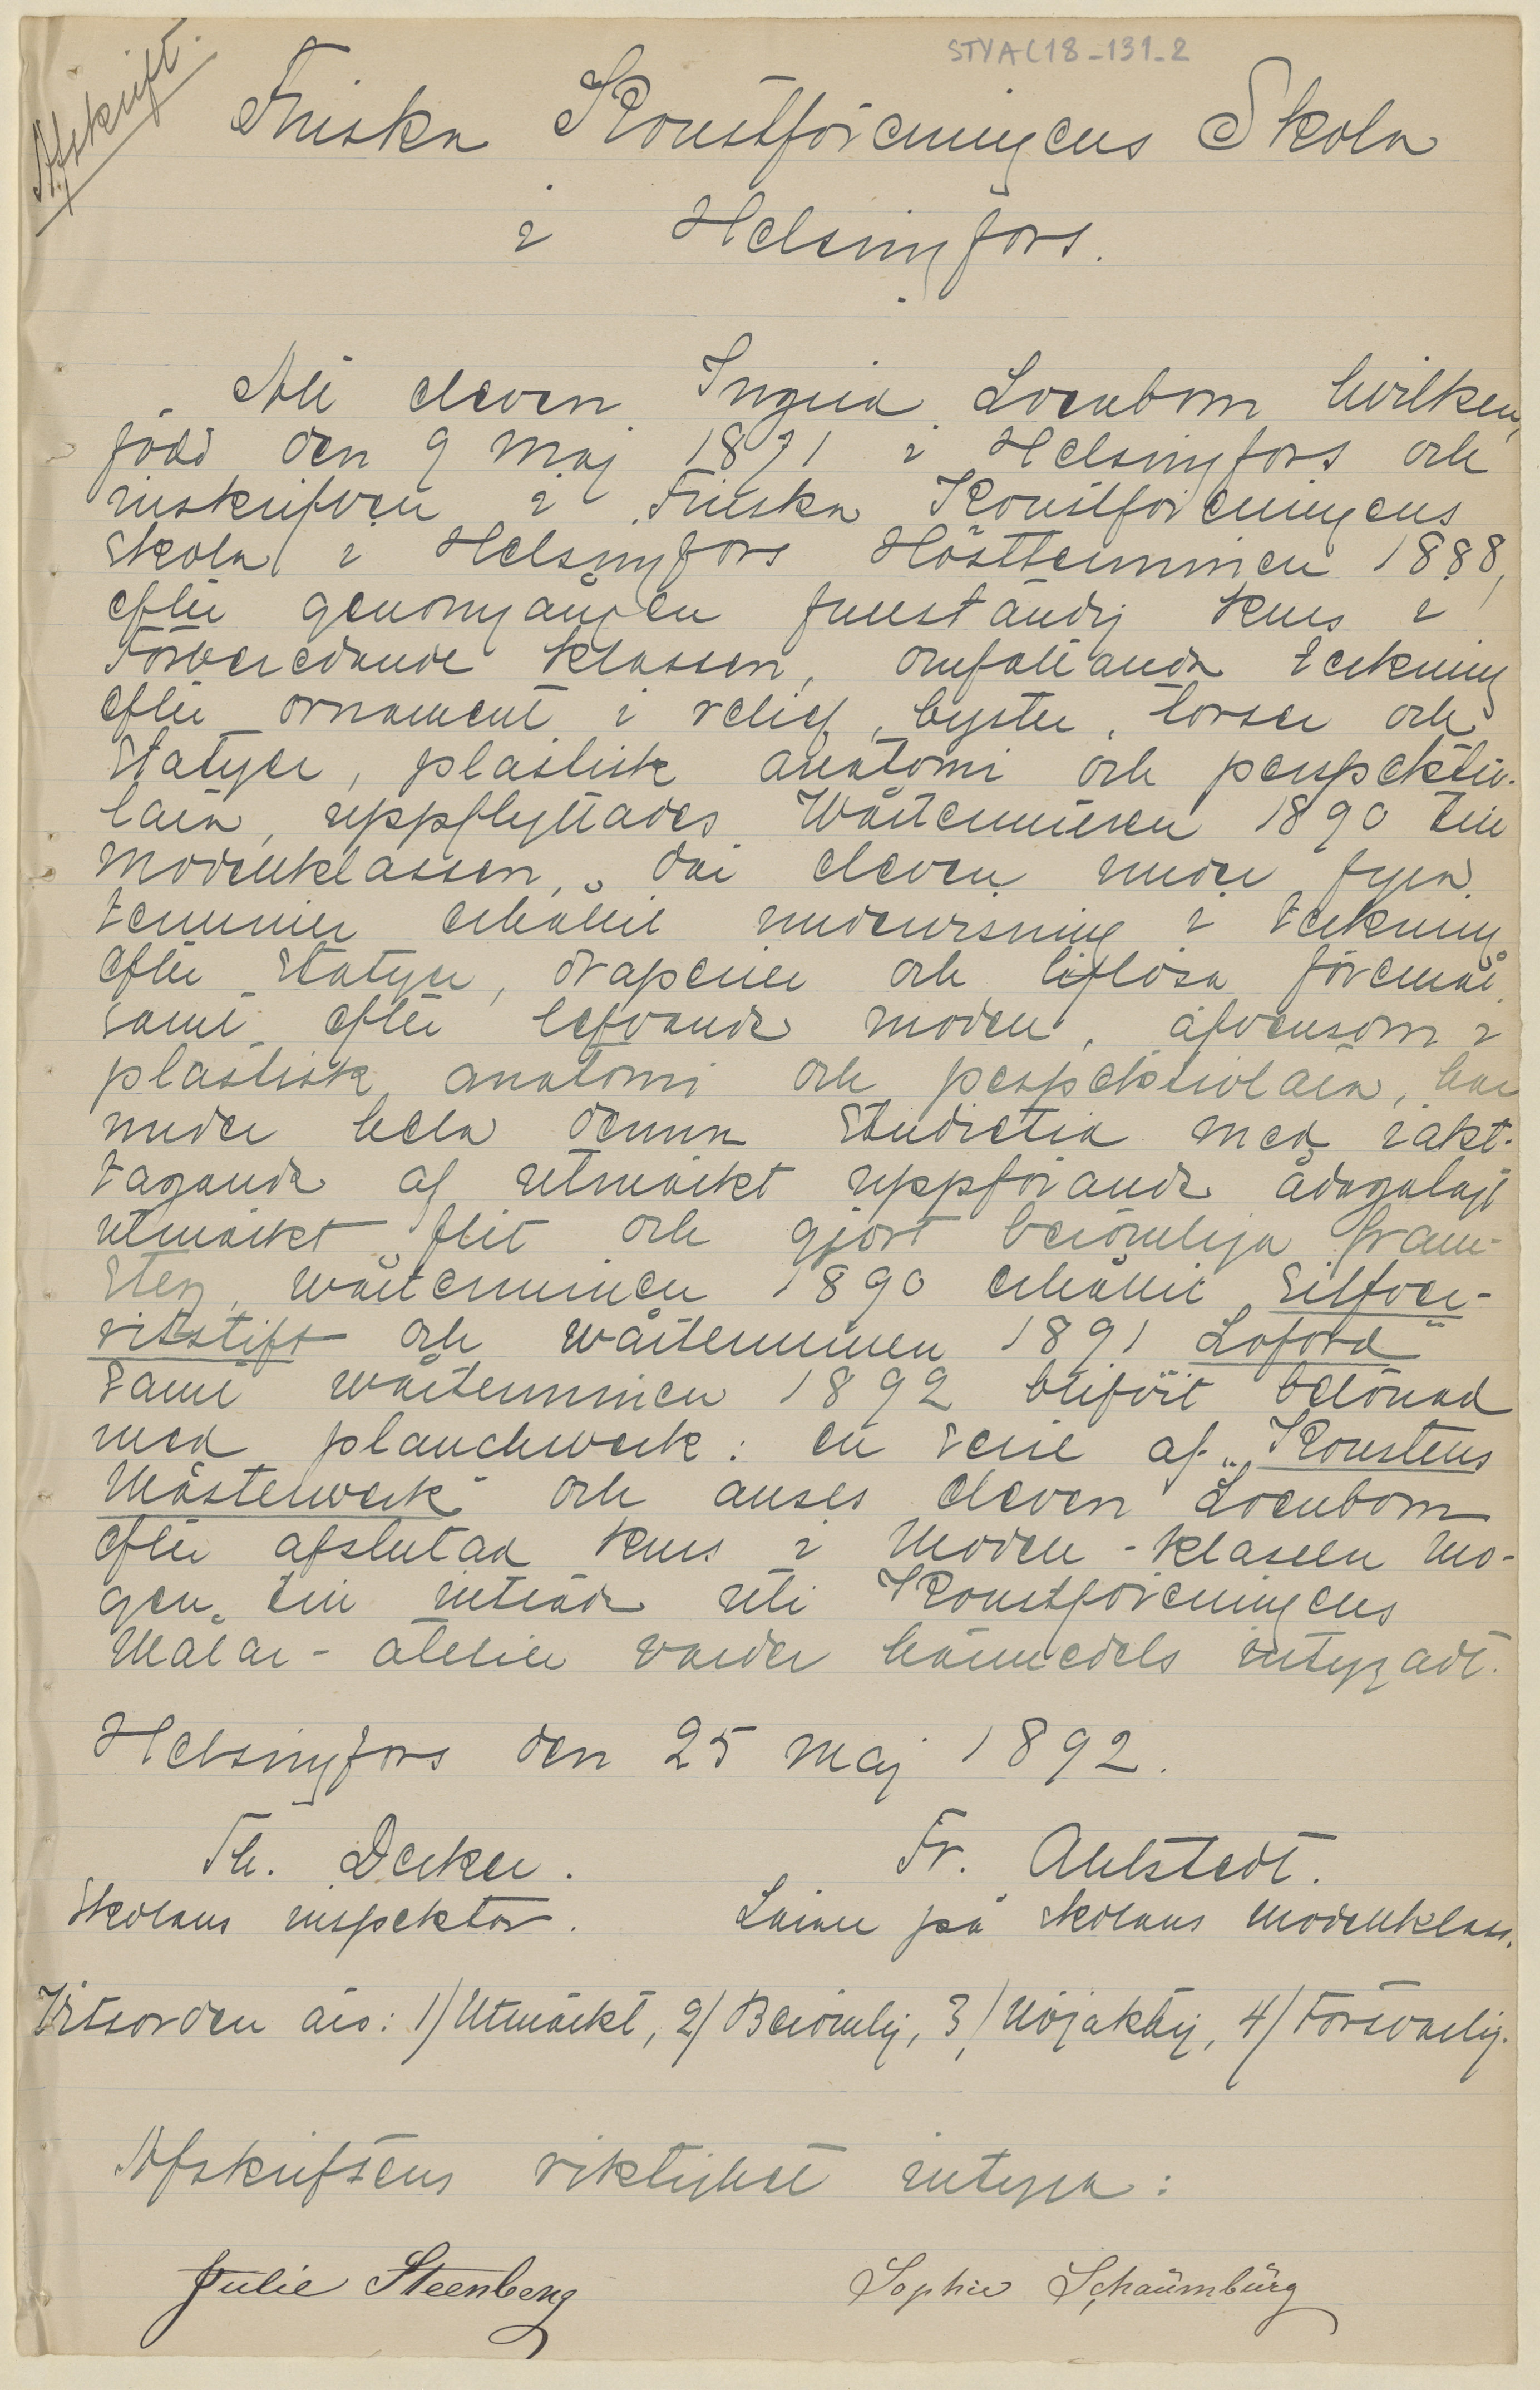 STYA C18-131-2
Afskrift.
Finska Konstföreningens Skola
i Helsingfors.
Att eleven Ingrid Locubom hvilken,
född den 9 Maj 1871 i Helsingfors och
inskrifven i Finska Konstföreningens
Skola i Helsingfors Höstterminen 1888,
efter genomgången fullständig kurs i
Förberedande klassen, omfattande teckning
efter ornament i relief, byster, torser och
Statyer, plastisk anatomi och perspektiv-
lära, uppflyttades Wårterminen 1890 till
Modellklassen, der eleven under fyra
terminer erhållit undervisning i teckning
efter Statyer, draperier och liflösa föremål
samt efter lefvande modell, äfvensom i
plastisk anatomi och perspektivlära, har
under hela denna Studietid med iakt-
tagande af utmärkt uppförande ådagalagt
utmärkt flit och gjort berömliga fram-
steg, wårterminen 1890 erhållit Silfver-
ritstift och wårterminen 1891 Loford
samt wårterminen 1892 blifvit belönad
med planchwerk: en serie af „Konstens
Mästerwerk" och anses eleven Locubom
efter afslutad kurs i Modell-klassen mo-
gen till inträde uti Konstföreningens
Målar-atelier varder härmedels intygadt.
Helsingfors den 25 maj 1892.
Th. Decker. Fr. Ahlstedt.
Skolans inspektor. Lärare på skolans modellklass.
Vitsorden äro: 1) Utmärkt, 2) Berömlig, 3) Nöjaktig, 4) Försvarlig.
Afskriftens riktighet intyga:
Julie Steenberg Sophie Schaumburg